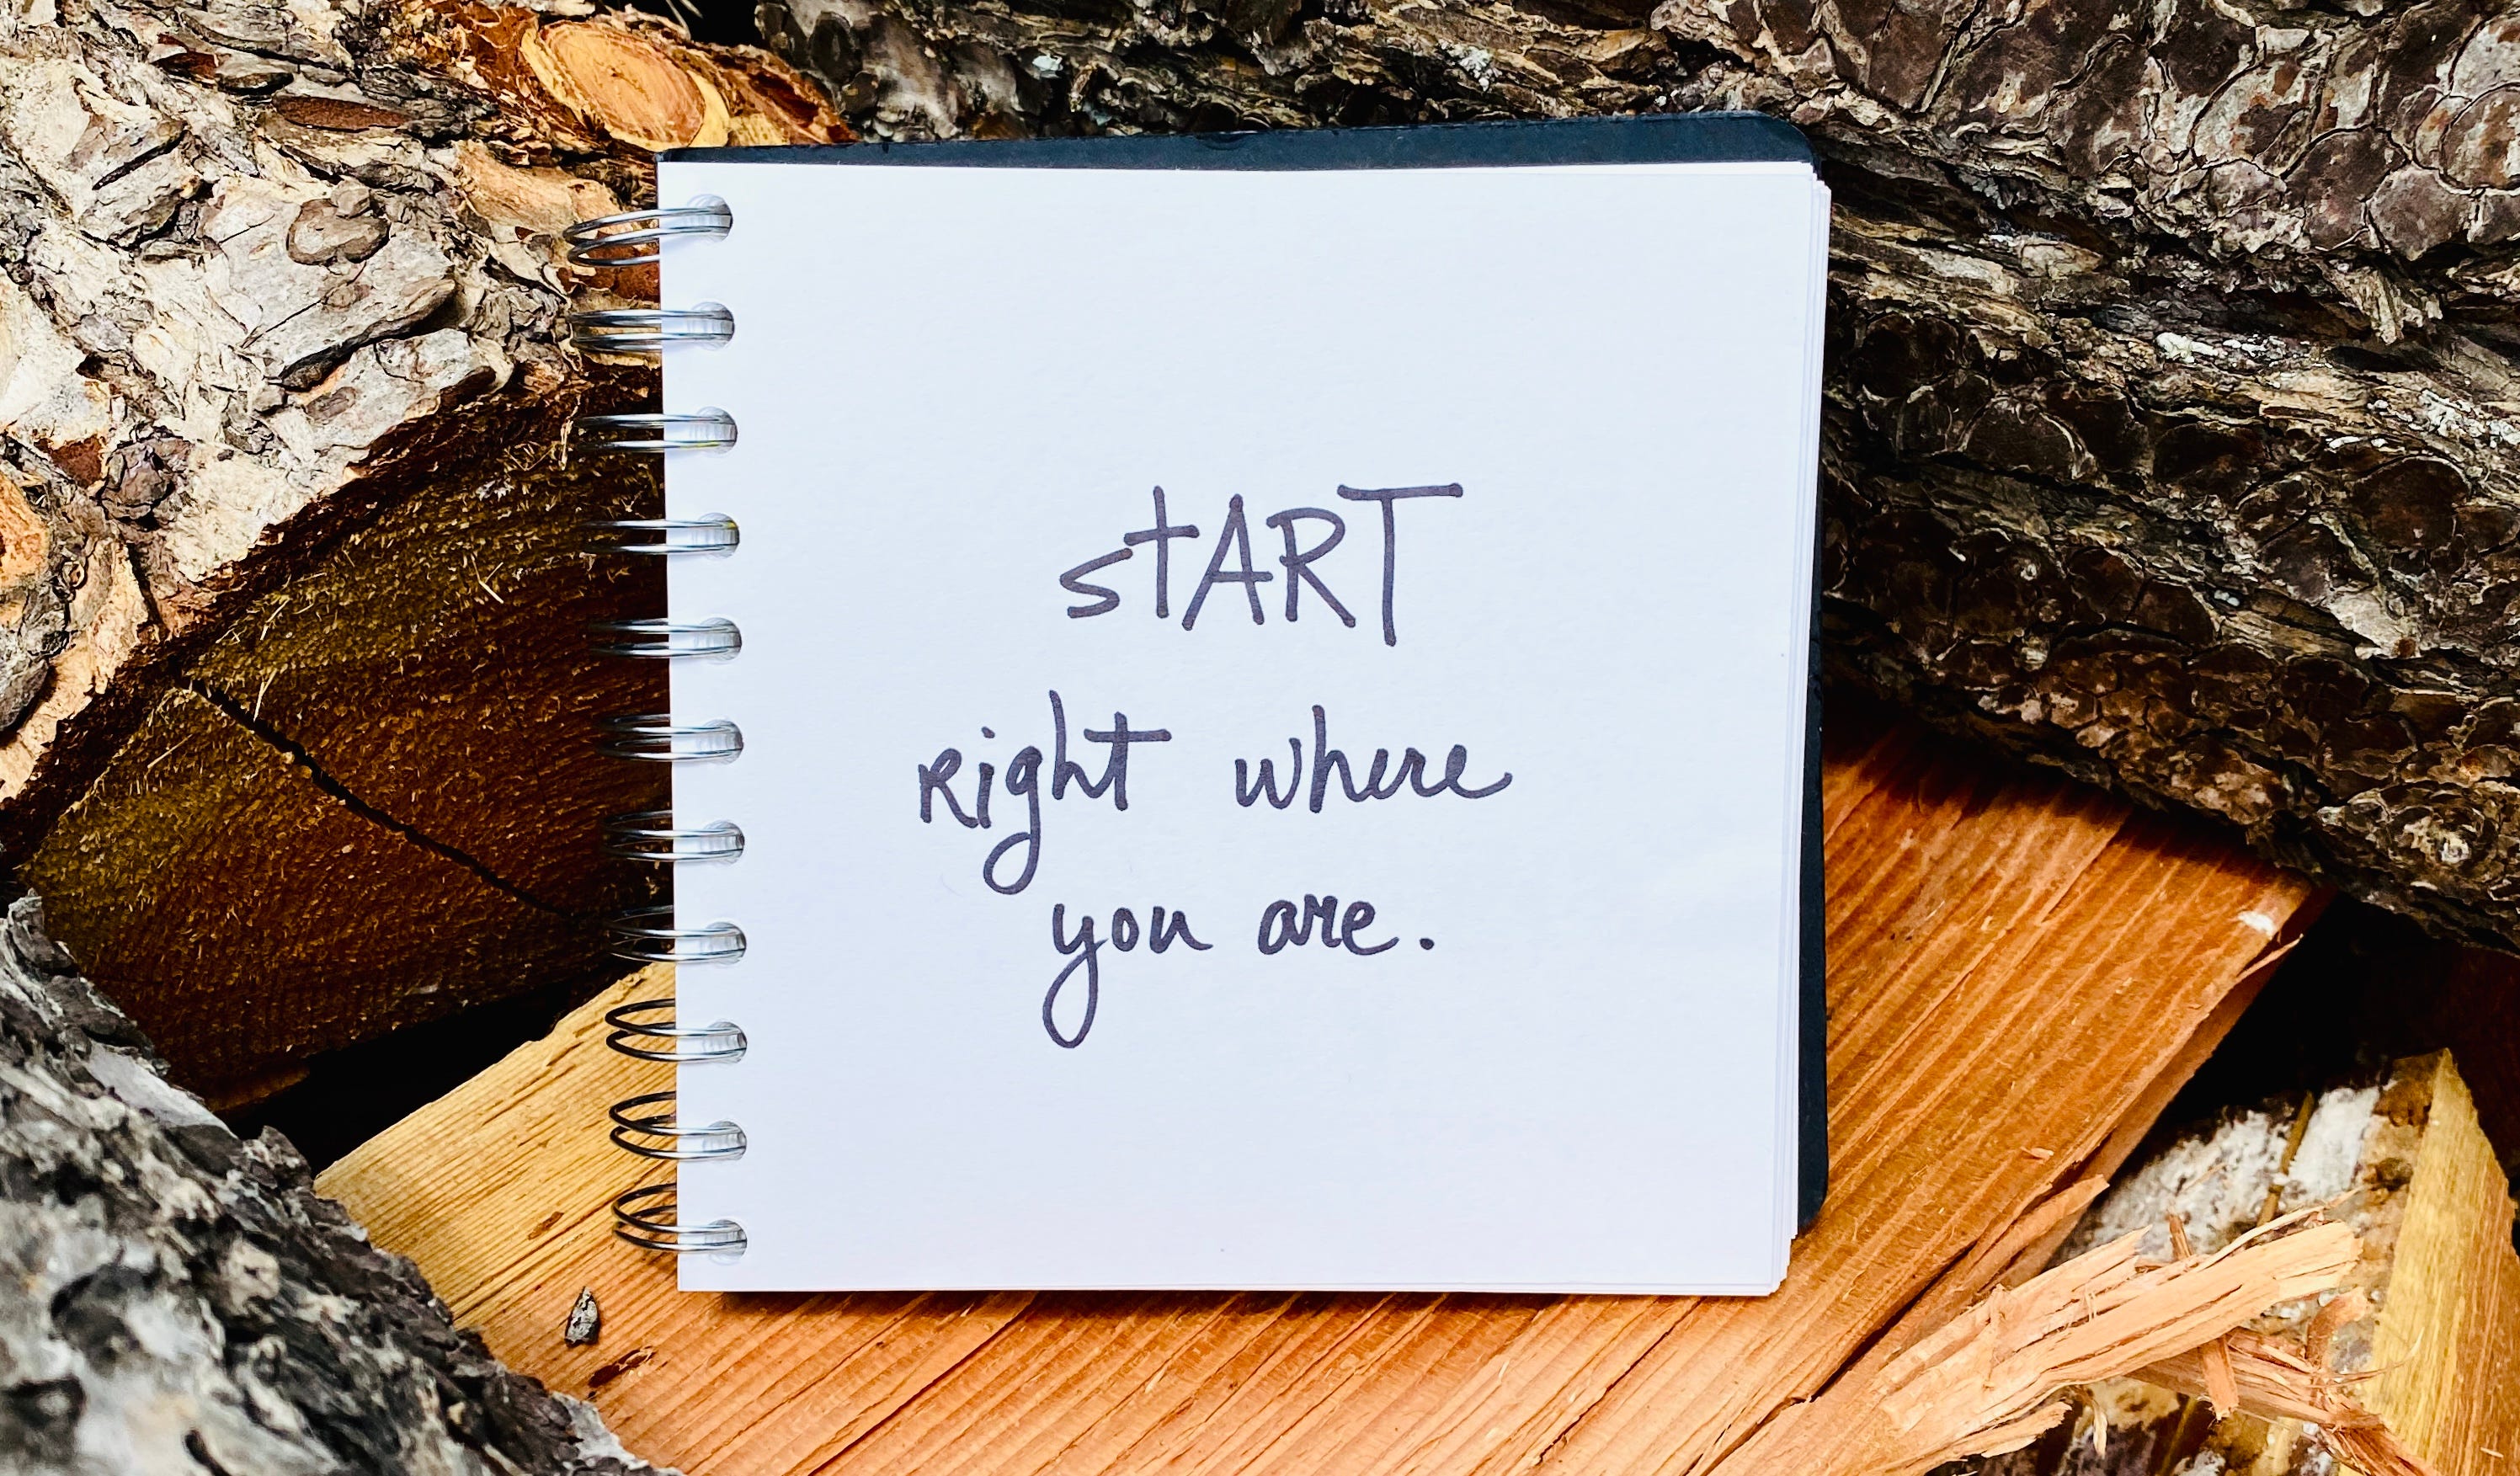 stART
Right where
you are.